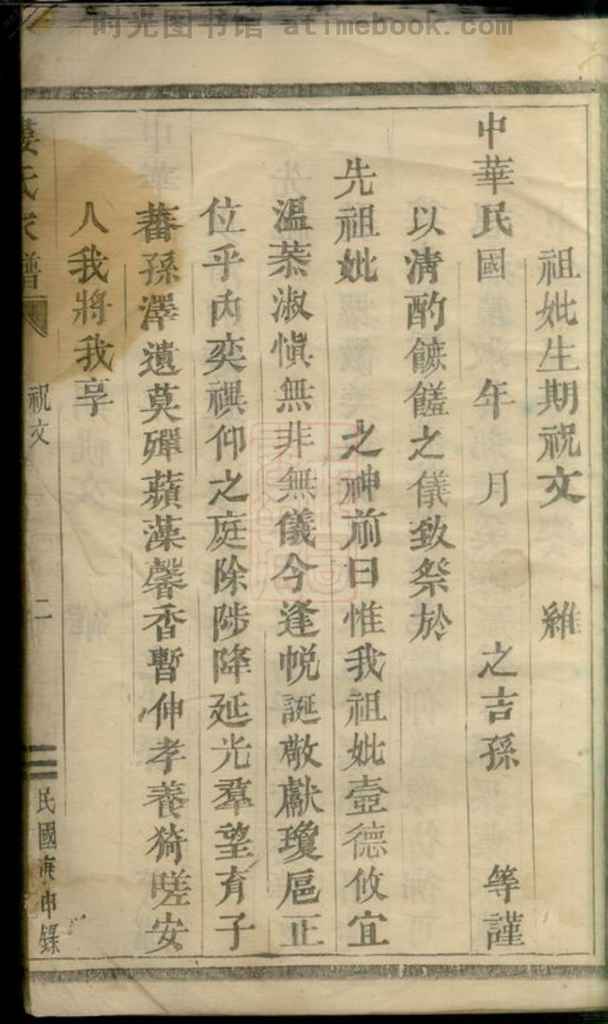 时光图书馆 atimebook.com
祖妣生期祝文 維
中華民國 年 月 之吉孫 等謹
以清酌餦饈之儀致祭於
先祖妣 之神前曰惟我祖妣壼德攸宜
溫恭淑愼無非無儀今逢帨誕敬獻瓊巵正
位乎內奕禩仰之庭除陟降延光羣望育子
蕃孫澤遺莫殫蘋藻馨香暫伸孝養猗嗟安
人我將我享
婁氏家譜 祝文 二 民國庚申錄